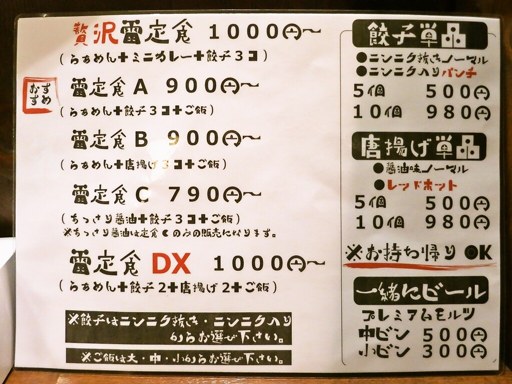 贅沢雷定食 1000円〜
(らぁめん+ミニカレー+餃子3コ)
おすすめ
雷定食A 900円〜
(らぁめん+餃子3コ+ご飯)
雷定食B 900円〜
(らぁめん+唐揚げ3コ+ご飯)
雷定食C 790円〜
(あっさり醤油+餃子3コ+ご飯)
※あっさり醤油は定食Cのみの販売になります。
雷定食DX 1000円〜
(らぁめん+餃子2+唐揚げ2+ご飯)
※餃子はニンニク抜き・ニンニク入り
からお選び下さい。
※ご飯は大・中・小からお選び下さい。
餃子単品
●ニンニク抜きノーマル
●ニンニク入りパンチ
5個 500円
10個 980円
唐揚げ単品
●醤油味ノーマル
●レッドホット
5個 500円
10個 980円
※お持ち帰りOK
一緒にビール
プレミアムモルツ
中ビン 500円
小ビン 300円